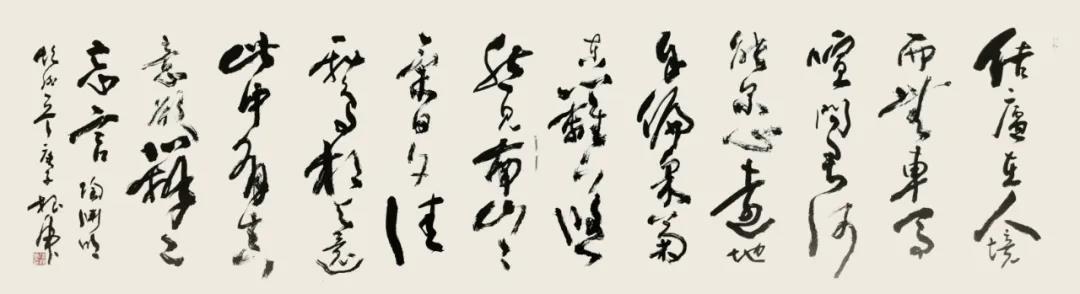 结廬在人境
而無車馬
喧問君何
能尔心遠地
自偏采菊
東籬下悠
然見南山々
氣日夕佳
飛鳥相与還
此中有真
意欲辨已
忘言 陶渊明